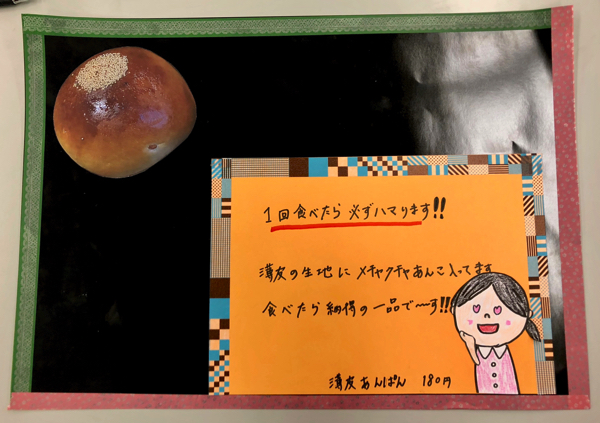 1回食べたら必ずハマります!!
薄皮の生地にメチャクチャあんこ入ってます
食べたら納得の一品で〜す!!
薄皮あんぱん 180円